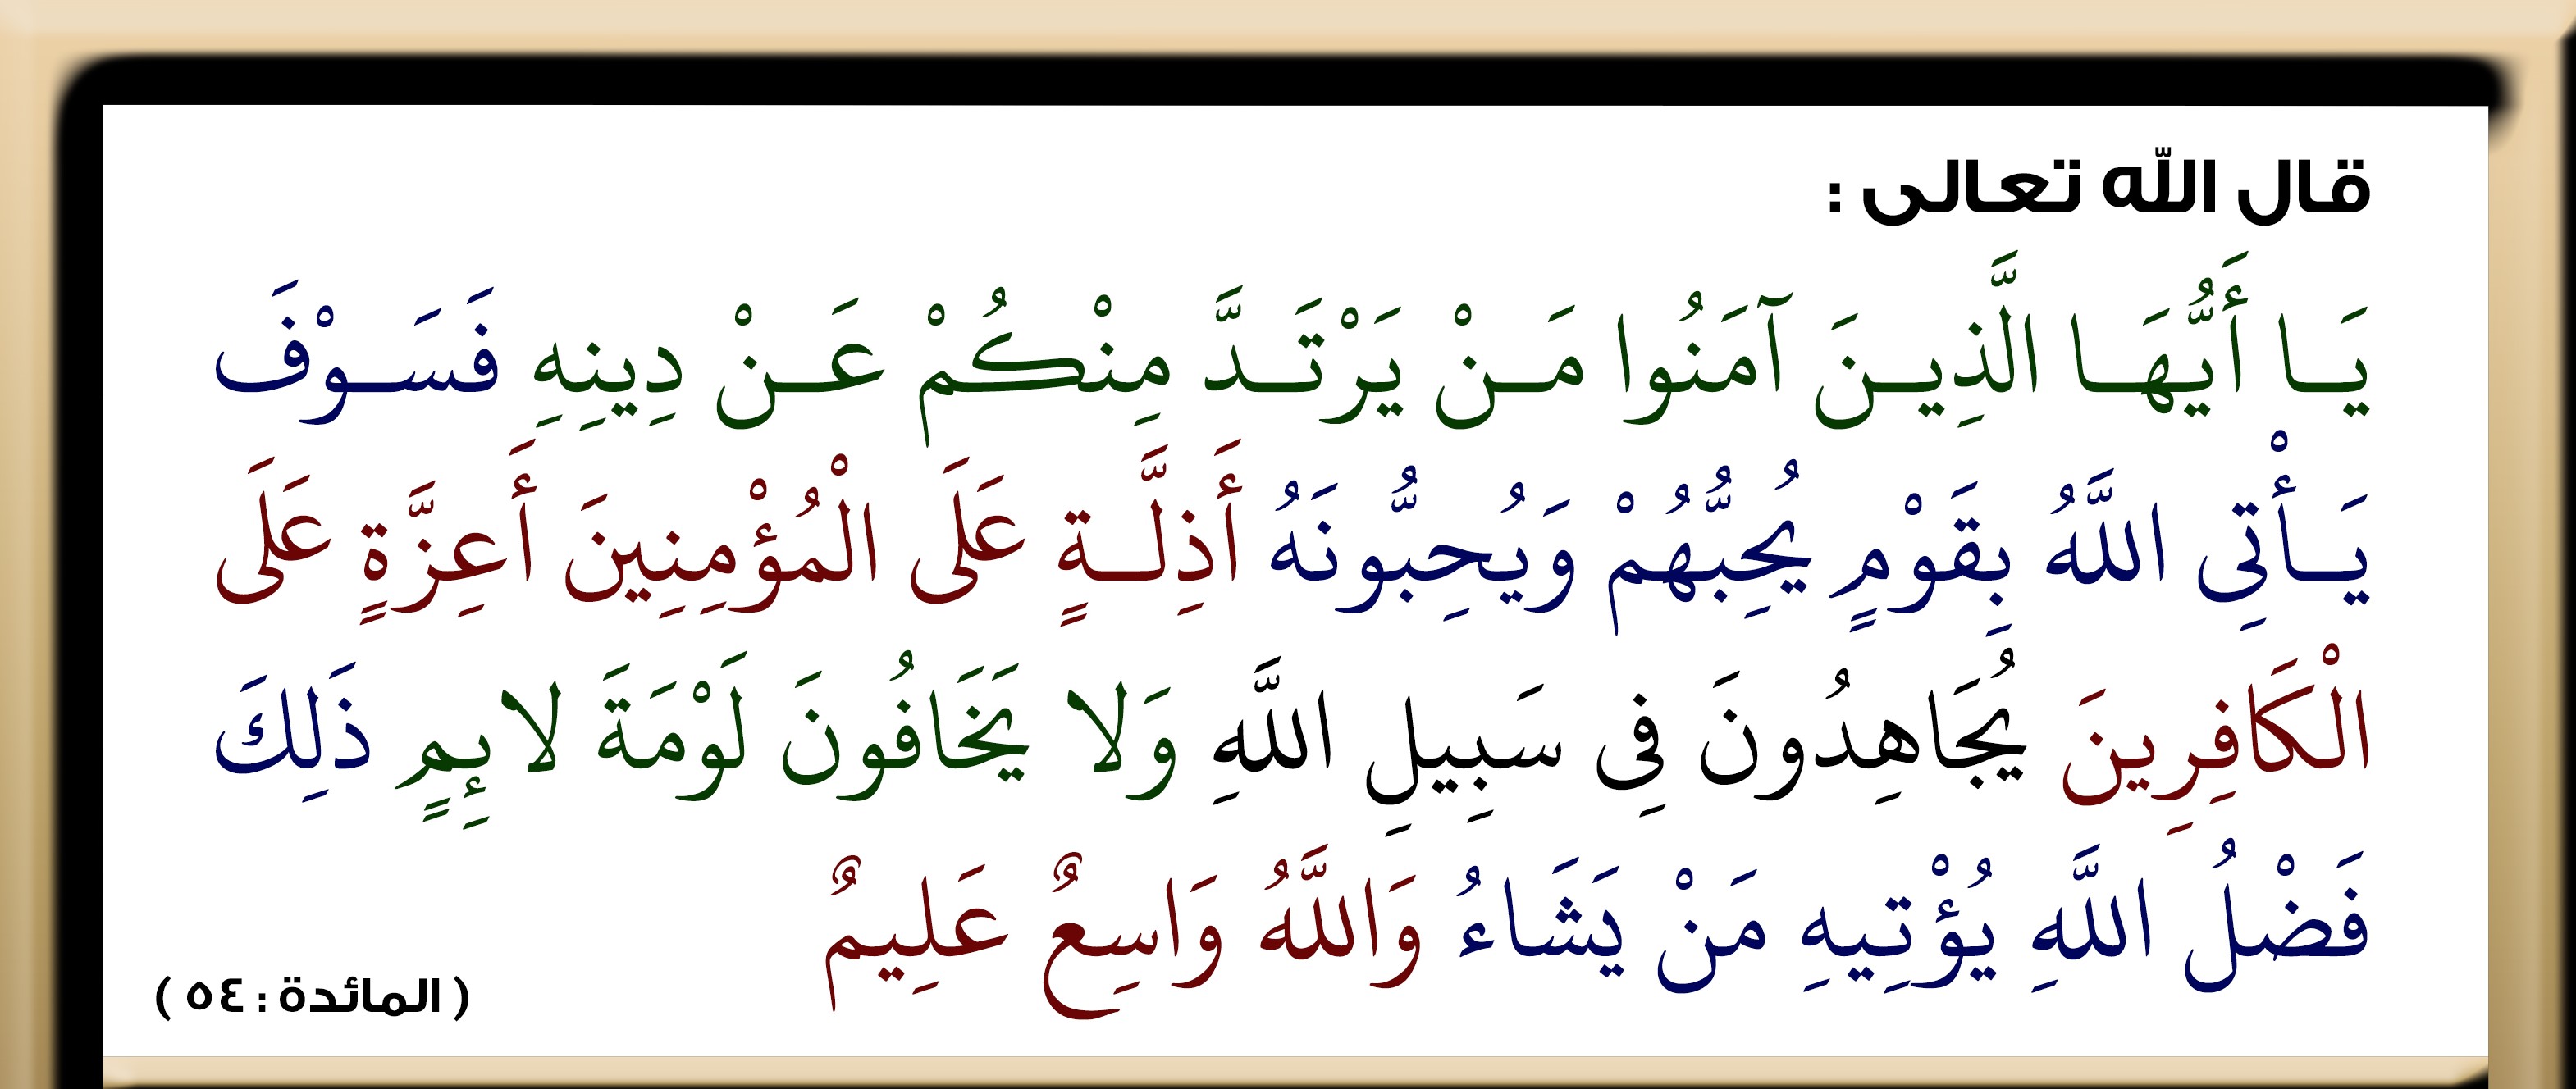 قال الله تعالى :
يَــا أَيُّهَــا الَّذِيــنَ آمَنُوا مَــنْ يَرْتَــدَّ مِنْكُمْ عَــنْ دِينِهِ فَسَــوْفَ
يَــأْتِى اللَّهُ بِقَوْمٍ يُحِبُّهُمْ وَيُحِبُّونَهُ أَذِلَّــةٍ عَلَى الْمُؤْمِنِينَ أَعِزَّةٍ عَلَى
الْكَافِرِينَ يُجَاهِدُونَ فِى سَبِيلِ اللَّهِ وَلا يَخَافُونَ لَوْمَةَ لائِمٍ ذَلِكَ
فَضْلُ اللَّهِ يُؤْتِيهِ مَنْ يَشَاءُ وَاللَّهُ وَاسِعٌ عَلِيمٌ
( المائدة : ٥٤ )